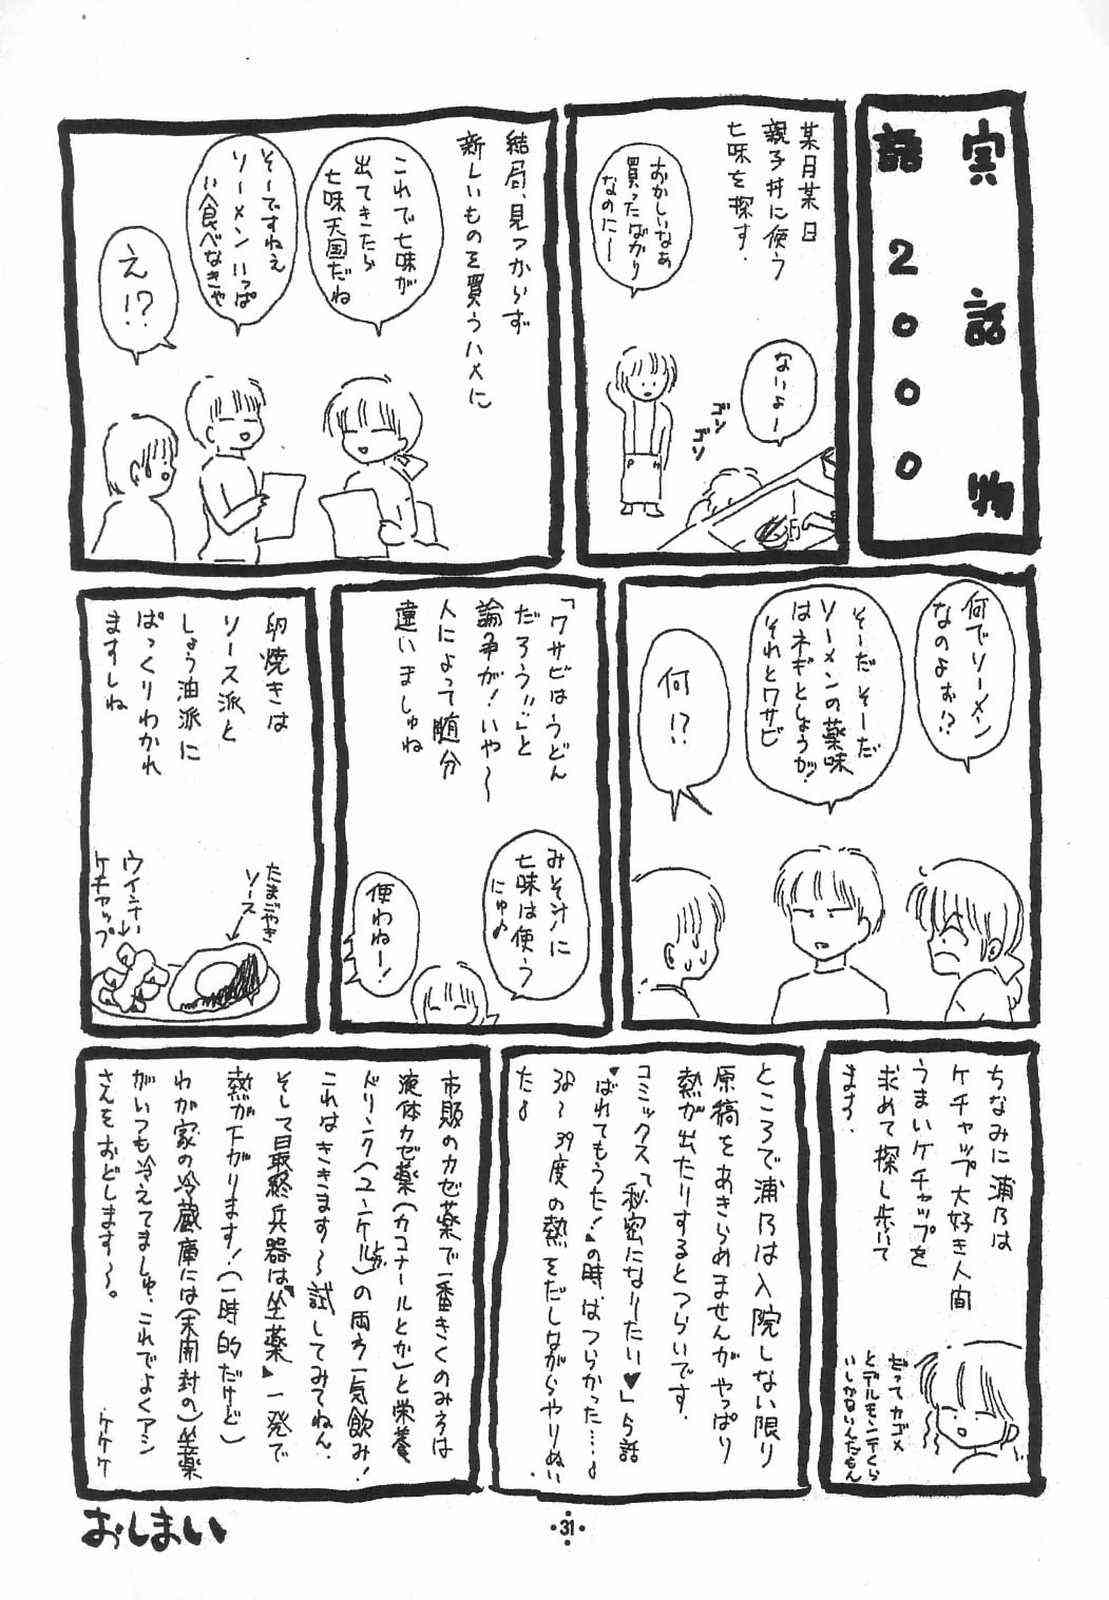 実話物
語2000
某月某日
親子丼に使う
七味を探す.
おかしいなぁ
買ったばかり
なのにー
ないよー
ゴン
ゴソ
結局、見つからず
新しいものを買うハメに
これで七味が
出てきたら
七味天国だね
そーですねえ
ソーメンいっぱ
い食べなきゃ
え!?
何でソーメン
なのよぉ!?
そーだそーだ
ソーメンの薬味
はネギとしょうが!
それとワサビ
何!?
「ワサビはうどん
だろう!」と
論争が!いや〜
人によって随分
違いましゅね
みそ汁に
七味は使う
にゅ♪
使わねー!
卵焼きは
ソース派と
しょう油派に
ぱっくりわかれ
ますしね
たまごやき
ソース
ウインナー
ケチャップ
ちなみに浦乃は
ケチャップ大好き人間
うまいケチャップを
求めて探し歩いて
ます.
だってカゴメ
とデルモンテくら
いしかないんだもん
ところで浦乃は入院しない限り
原稿をあきらめませんがやっぱり
熱が出たりするとつらいです.
コミックス「秘密になりーたい♥」ら話
♥ばれてもうた!♥の時ばつらかった…♪
38〜39度の熱をだしながらやりぬい
た♪
市販のカゼ薬で一番きくのみ方は
液体カゼ薬(カコナールとか)と栄養
ドリンク(ユンケルとか)の両方一気飲み!
これはききます〜試してみてねん.
そして最終兵器は"坐薬"一発で
熱が下がります!(一時的だけど)
わが家の冷蔵庫には(未開封の)坐薬
がいつも冷えてましゅ.これでよくアシ
さんをおどします〜。 ケケケ
おしまい
31